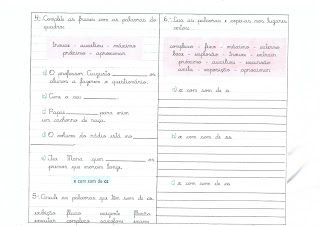 4. Complete as frases com as palavras do quadro:
trouxe - auxiliou - máximo
próximo - aproximar
a) O professor Augusto ________ os
alunos a fazerem o questionário.
b) Cure o seu ________
c) Papai ________ para mim
um cachorro de raça.
d) O volume do rádio está no
________.
e) Tia Mara quer ________ os
primos que moram longe.
x com som de cs
5. Circule as palavras que têm som de cs.
exibição fluxo
complexo saxofone
6. Leia as palavras e copie-as nos lugares
certos:
complexo - fixo - máximo - externo
boxe - explosão - trouxe - extrair
próximo - auxiliou - expulsão
axila - exposição - aproximar
a) x com som de s.
b) x com som de ss.
c) x com som de cs.